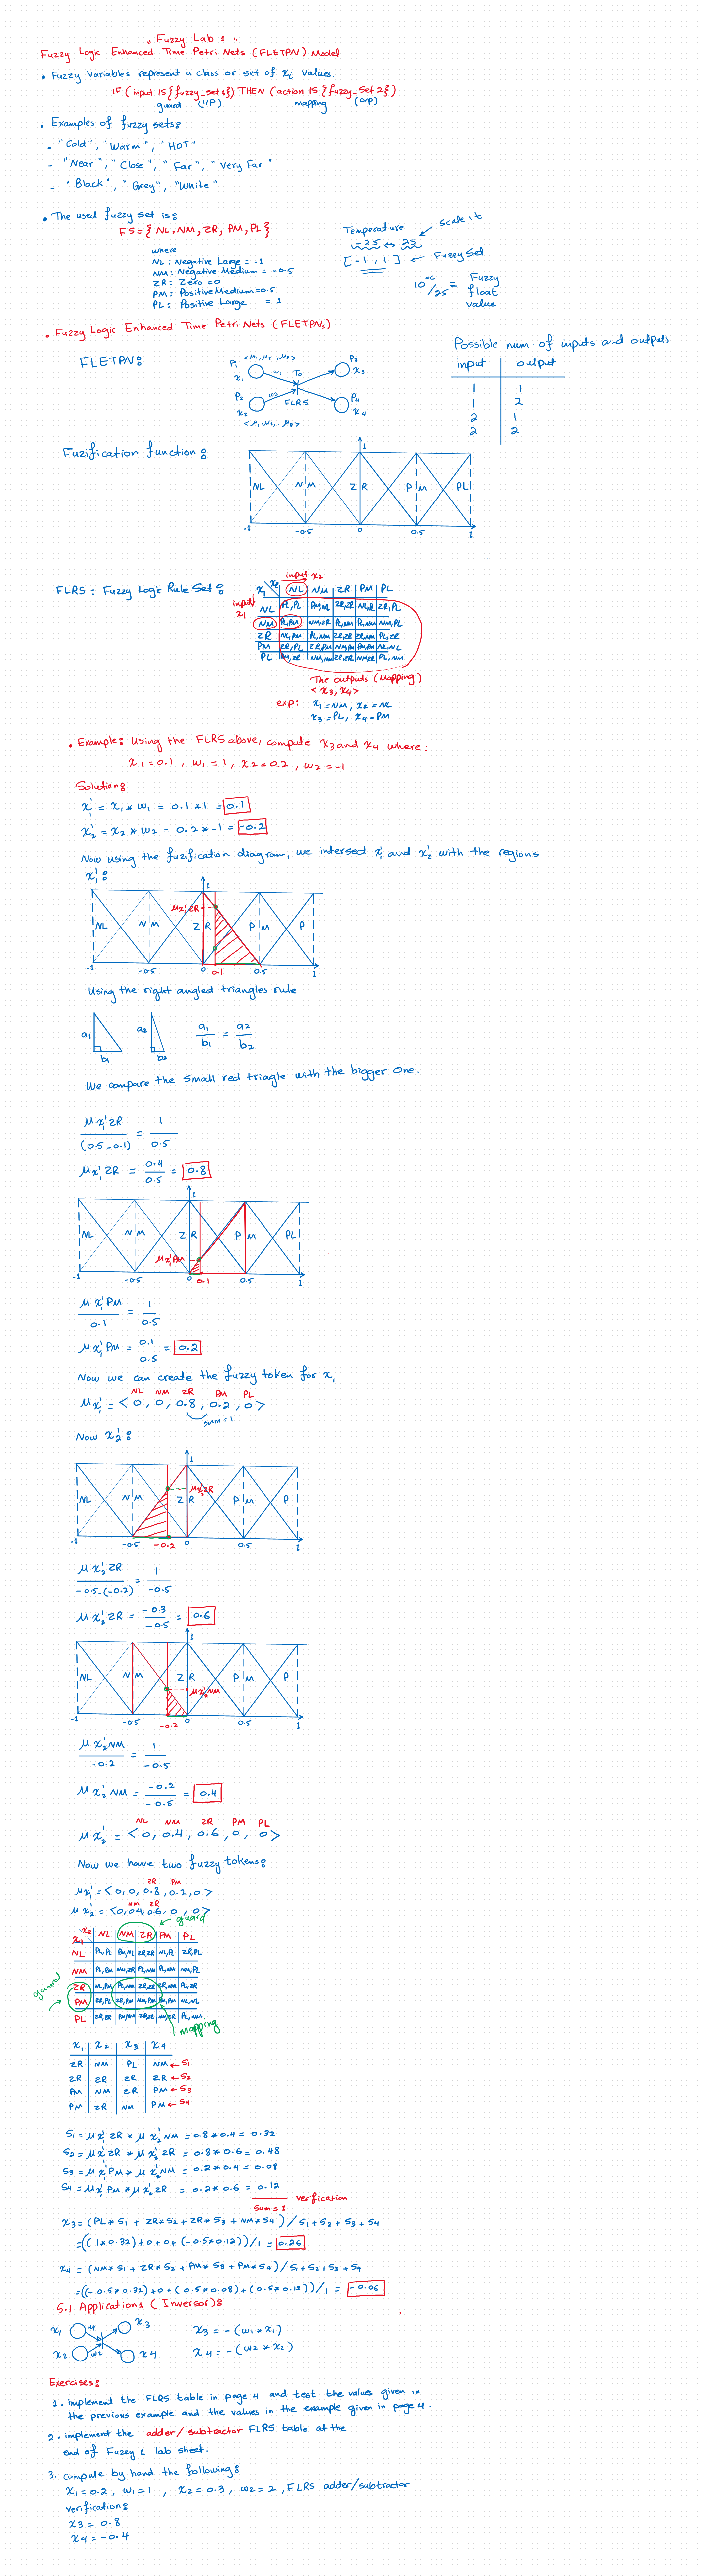 "Fuzzy Lab 1"
Fuzzy Logic Enhanced Time Petri Nets (FLETPN) Model
• Fuzzy Variables represent a class or set of xi values.
IF (input IS {fuzzy_set1}) THEN (action IS {fuzzy_set 2})
guard (I/P) mapping (O/P)
• Examples of fuzzy sets:
- "Cold", "Warm", "HOT"
- "Near", "Close", "Far", "Very Far"
- "Black", "Grey", "White"
• The used fuzzy set is:
FS = { NL, NM, ZR, PM, PL }
where
NL : Negative Large = -1
NM : Negative Medium = -0.5
ZR : Zero = 0
PM : Positive Medium = 0.5
PL : Positive Large = 1
Temperature
scale it
-25 ↔ 25
[-1 , 1] ← Fuzzy Set
10°C/25 = Fuzzy float value
• Fuzzy Logic Enhanced Time Petri Nets (FLETPNs)
FLETPN:
P1 x1 w1 T0 P3 x3
P2 x2 w2 FLRS P4 x4
Possible num. of inputs and outputs
input output
1 1
1 2
2 1
2 2
Fuzification function:
1
NL NM ZR PM PL
-1 -0.5 0 0.5 1
FLRS : Fuzzy Logic Rule Set :
input x2
input x1
x1 x2 NL NM ZR PM PL
NL
NM PL,PM
ZR
PM
PL
The outputs (Mapping)
< x3, x4 >
exp: x1 = NM, x2 = NL
x3 = PL, x4 = PM
• Example: Using the FLRS above, compute x3 and x4 where:
x1 = 0.1 , w1 = 1 , x2 = 0.2 , w2 = -1
Solution:
x1' = x1 * w1 = 0.1 * 1 = 0.1
x2' = x2 * w2 = 0.2 * -1 = -0.2
Now using the fuzification diagram, we intersed x1' and x2' with the regions
x1' :
1
μx1'ZR
NL NM ZR PM P
-1 -0.5 0 0.1 0.5 1
Using the right angled triangles rule
a1 b1 a2 b2 a1/b1 = a2/b2
We compare the small red triagle with the bigger one.
μx1'ZR / (0.5-0.1) = 1 / 0.5
μx1'ZR = 0.4 / 0.5 = 0.8
1
NL NM ZR PM PL
μx1'PM
-1 -0.5 0 0.1 0.5 1
μx1'PM / 0.1 = 1 / 0.5
μx1'PM = 0.1 / 0.5 = 0.2
Now we can create the fuzzy token for x1
NL NM ZR PM PL
μx1' = < 0, 0, 0.8, 0.2, 0 >
sum = 1
Now x2' :
1
μx2'ZR
NL NM ZR PM P
-1 -0.5 -0.2 0 0.5 1
μx2'ZR / -0.5-(-0.2) = 1 / -0.5
μx2'ZR = -0.3 / -0.5 = 0.6
1
NL NM ZR PM P
μx2'NM
-1 -0.5 -0.2 0 0.5 1
μx2'NM / -0.2 = 1 / -0.5
μx2'NM = -0.2 / -0.5 = 0.4
NL NM ZR PM PL
μx2' = < 0, 0.4, 0.6, 0, 0 >
Now we have two fuzzy tokens:
ZR PM
μx1' = < 0, 0, 0.8, 0.2, 0 >
NM ZR
μx2' = < 0, 0.4, 0.6, 0, 0 >
guard
x1 x2 NL NM ZR PM PL
NL
NM
ZR
PM
PL
guard
mapping
x1 x2 x3 x4
ZR NM PL NM ← S1
ZR ZR ZR ZR ← S2
PM NM ZR PM ← S3
PM ZR NM PM ← S4
S1 = μx1'ZR * μx2'NM = 0.8 * 0.4 = 0.32
S2 = μx1'ZR * μx2'ZR = 0.8 * 0.6 = 0.48
S3 = μx1'PM * μx2'NM = 0.2 * 0.4 = 0.08
S4 = μx1'PM * μx2'ZR = 0.2 * 0.6 = 0.12
sum = 1 verification
x3 = (PL * S1 + ZR * S2 + ZR * S3 + NM * S4) / S1 + S2 + S3 + S4
= ((1 * 0.32) + 0 + 0 + (-0.5 * 0.12)) / 1 = 0.26
x4 = (NM * S1 + ZR * S2 + PM * S3 + PM * S4) / S1 + S2 + S3 + S4
= ((-0.5 * 0.32) + 0 + (0.5 * 0.08) + (0.5 * 0.12)) / 1 = -0.06
5.1 Application1 (Inversor):
x1 w1 x3
x2 w2 x4
x3 = -(w1 * x1)
x4 = -(w2 * x2)
Exercises:
1. implement the FLRS table in page 4 and test the values given in
the previous example and the values in the example given in page 4.
2. implement the adder/subtractor FLRS table at the
end of Fuzzy 1 lab sheet.
3. compute by hand the following:
x1 = 0.2, w1 = 1 , x2 = 0.3, w2 = 2, FLRS adder/subtractor
verification:
x3 = 0.8
x4 = -0.4